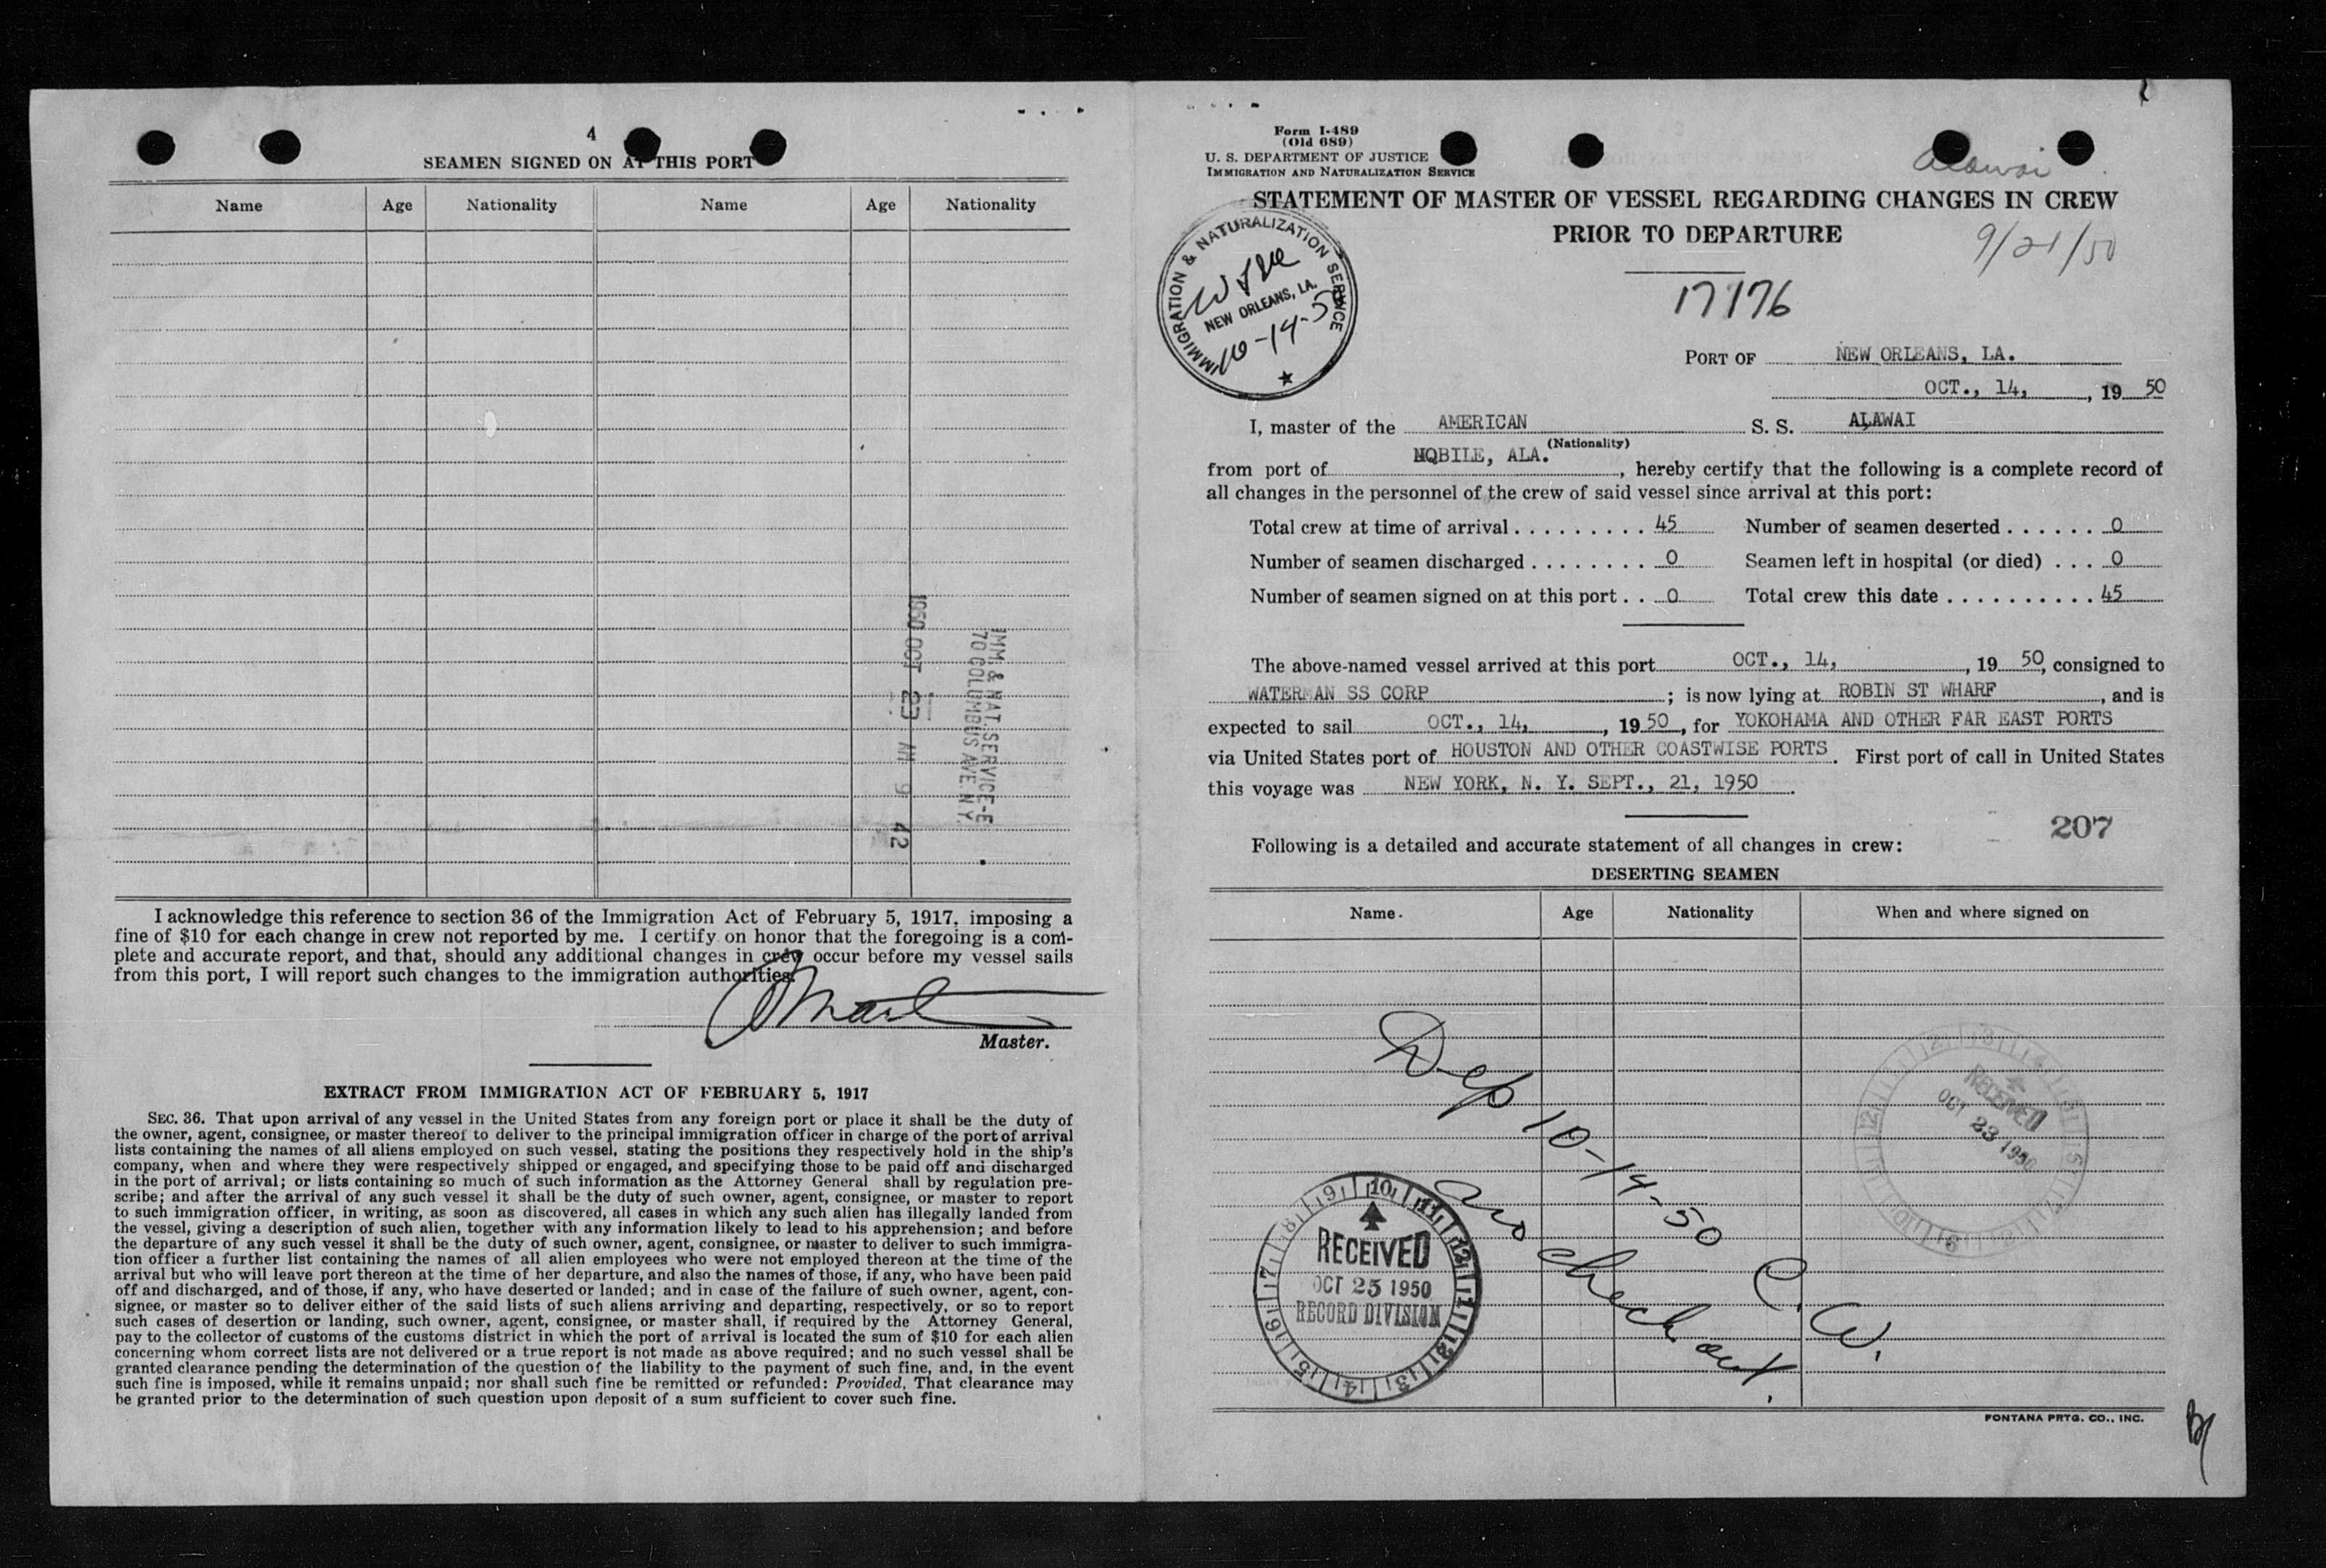 4
SEAMEN SIGNED ON AT THIS PORT
Name Age Nationality Name Age Nationality
1950 OCT 23 AM 9 42
IMM. & NAT. SERVICE-E
70 COLUMBUS AVE. N.Y.
I acknowledge this reference to section 36 of the Immigration Act of February 5, 1917, imposing a
fine of $10 for each change in crew not reported by me. I certify on honor that the foregoing is a com-
plete and accurate report, and that, should any additional changes in crew occur before my vessel sails
from this port, I will report such changes to the immigration authorities.
Master.
EXTRACT FROM IMMIGRATION ACT OF FEBRUARY 5, 1917
SEC. 36. That upon arrival of any vessel in the United States from any foreign port or place it shall be the duty of
the owner, agent, consignee, or master thereof to deliver to the principal immigration officer in charge of the port of arrival
lists containing the names of all aliens employed on such vessel, stating the positions they respectively hold in the ship's
company, when and where they were respectively shipped or engaged, and specifying those to be paid off and discharged
in the port of arrival; or lists containing so much of such information as the Attorney General shall by regulation pre-
scribe; and after the arrival of any such vessel it shall be the duty of such owner, agent, consignee, or master to report
to such immigration officer, in writing, as soon as discovered, all cases in which any such alien has illegally landed from
the vessel, giving a description of such alien, together with any information likely to lead to his apprehension; and before
the departure of any such vessel it shall be the duty of such owner, agent, consignee, or master to deliver to such immigra-
tion officer a further list containing the names of all alien employees who were not employed thereon at the time of the
arrival but who will leave port thereon at the time of her departure, and also the names of those, if any, who have been paid
off and discharged, and of those, if any, who have deserted or landed; and in case of the failure of such owner, agent, con-
signee, or master so to deliver either of the said lists of such aliens arriving and departing, respectively, or so to report
such cases of desertion or landing, such owner, agent, consignee, or master shall, if required by the Attorney General,
pay to the collector of customs of the customs district in which the port of arrival is located the sum of $10 for each alien
concerning whom correct lists are not delivered or a true report is not made as above required; and no such vessel shall be
granted clearance pending the determination of the question of the liability to the payment of such fine, and, in the event
such fine is imposed, while it remains unpaid; nor shall such fine be remitted or refunded: Provided, That clearance may
be granted prior to the determination of such question upon deposit of a sum sufficient to cover such fine.
Form I-489
(Old 689)
U. S. DEPARTMENT OF JUSTICE
IMMIGRATION AND NATURALIZATION SERVICE
Alawai
STATEMENT OF MASTER OF VESSEL REGARDING CHANGES IN CREW
PRIOR TO DEPARTURE
9/21/50
IMMIGRATION & NATURALIZATION SERVICE
NEW ORLEANS, LA.
10-14-50
17176
PORT OF NEW ORLEANS, LA.
OCT., 14, , 19 50
I, master of the AMERICAN S. S. ALAWAI
(Nationality)
from port of MOBILE, ALA. , hereby certify that the following is a complete record of
all changes in the personnel of the crew of said vessel since arrival at this port:
Total crew at time of arrival . . . . . . . . . 45 Number of seamen deserted . . . . . . 0
Number of seamen discharged . . . . . . . . 0 Seamen left in hospital (or died) . . . 0
Number of seamen signed on at this port . . 0 Total crew this date . . . . . . . . . . 45
The above-named vessel arrived at this port OCT., 14, , 19 50, consigned to
WATERMAN SS CORP ; is now lying at ROBIN ST WHARF , and is
expected to sail OCT., 14, , 19 50 , for YOKOHAMA AND OTHER FAR EAST PORTS
via United States port of HOUSTON AND OTHER COASTWISE PORTS . First port of call in United States
this voyage was NEW YORK, N. Y. SEPT., 21, 1950 .
207
Following is a detailed and accurate statement of all changes in crew:
DESERTING SEAMEN
Name. Age Nationality When and where signed on
Dep 10-14-50 C. W.
no check out.
RECEIVED
OCT 23 1950
RECEIVED
OCT 25 1950
RECORD DIVISION
FONTANA PRTG. CO., INC.